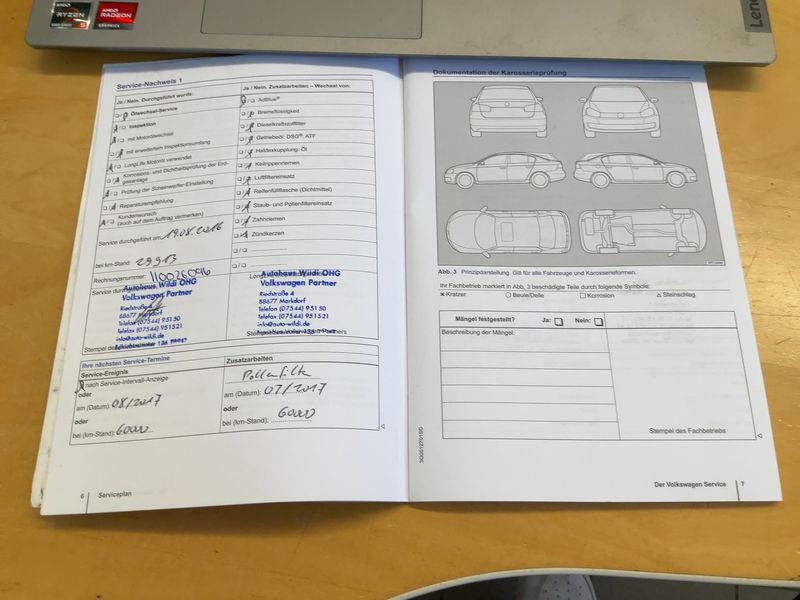 AMD
RYZEN
5
AMD
RADEON
GRAPHICS
Leno
Service-Nachweis 1
Ja / Nein. Durchgeführt wurde:
Ölwechsel-Service
Inspektion
mit Motorölwechsel
mit erweitertem Inspektionsumfang
LongLife Motoröl verwendet
Korrosions- und Dichtheitsprüfung der Erd-
gasanlage
Prüfung der Scheinwerfer-Einstellung
Reparaturempfehlung
Kundenwunsch
(auch auf dem Auftrag vermerken)
Service durchgeführt am: 19.08.2016
bei km-Stand: 29913
Rechnungsnummer: 110026096
Service durch
Autohaus Wildi OHG
Volkswagen Partner
Riedstraße 4
88677 Markdorf
Telefon (07544) 95150
Telefax (07544) 951521
info@auto-wildi.de
Stempel des
Ja / Nein. Zusatzarbeiten – Wechsel von:
AdBlue®
Bremsflüssigkeit
Dieselkraftstofffilter
Getriebeöl: DSG®, ATF
Haldexkupplung: Öl
Keilrippenriemen
Luftfiltereinsatz
Reifenfüllflasche (Dichtmittel)
Staub- und Pollenfiltereinsatz
Zahnriemen
Zündkerzen
Autohaus Wildi OHG
Volkswagen Partner
Riedstraße 4
88677 Markdorf
Telefon (07544) 95150
Telefax (07544) 951521
info@auto-wildi.de
Ihre nächsten Service-Termine
Service-Ereignis
nach Service-Intervall-Anzeige
oder
am (Datum): 08/2017
oder
bei (km-Stand): 60000
Zusatzarbeiten
Pollenfilter
am (Datum): 07/2017
oder
bei (km-Stand): 60000
6 Serviceplan
Dokumentation der Karosserieprüfung
Abb. 3 Prinzipdarstellung. Gilt für alle Fahrzeuge und Karosserieformen.
Ihr Fachbetrieb markiert in Abb. 3 beschädigte Teile durch folgende Symbole:
× Kratzer ○ Beule/Delle □ Korrosion △ Steinschlag
Mängel festgestellt? Ja: Nein:
Beschreibung der Mängel:
Stempel des Fachbetriebs
Der Volkswagen Service 7